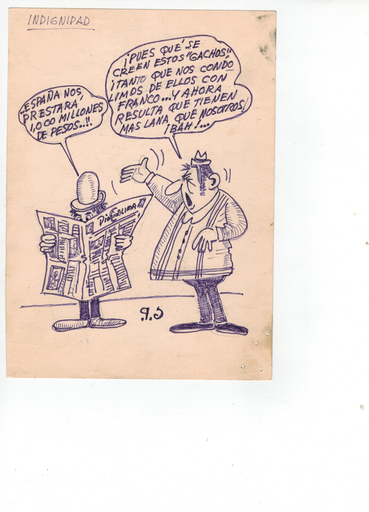 INDIGNIDAD
¡ESPAÑA NOS
PRESTARÁ
1,000 MILLONES
DE PESOS..!!
¡PUES QUÉ SE
CREEN ESTOS "GACHOS"
¡TANTO QUE NOS CONDO
LIMOS DE ELLOS CON
FRANCO...Y AHORA
RESULTA QUE TIENEN
MAS LANA QUE NOSOTROS!
¡BAH!...